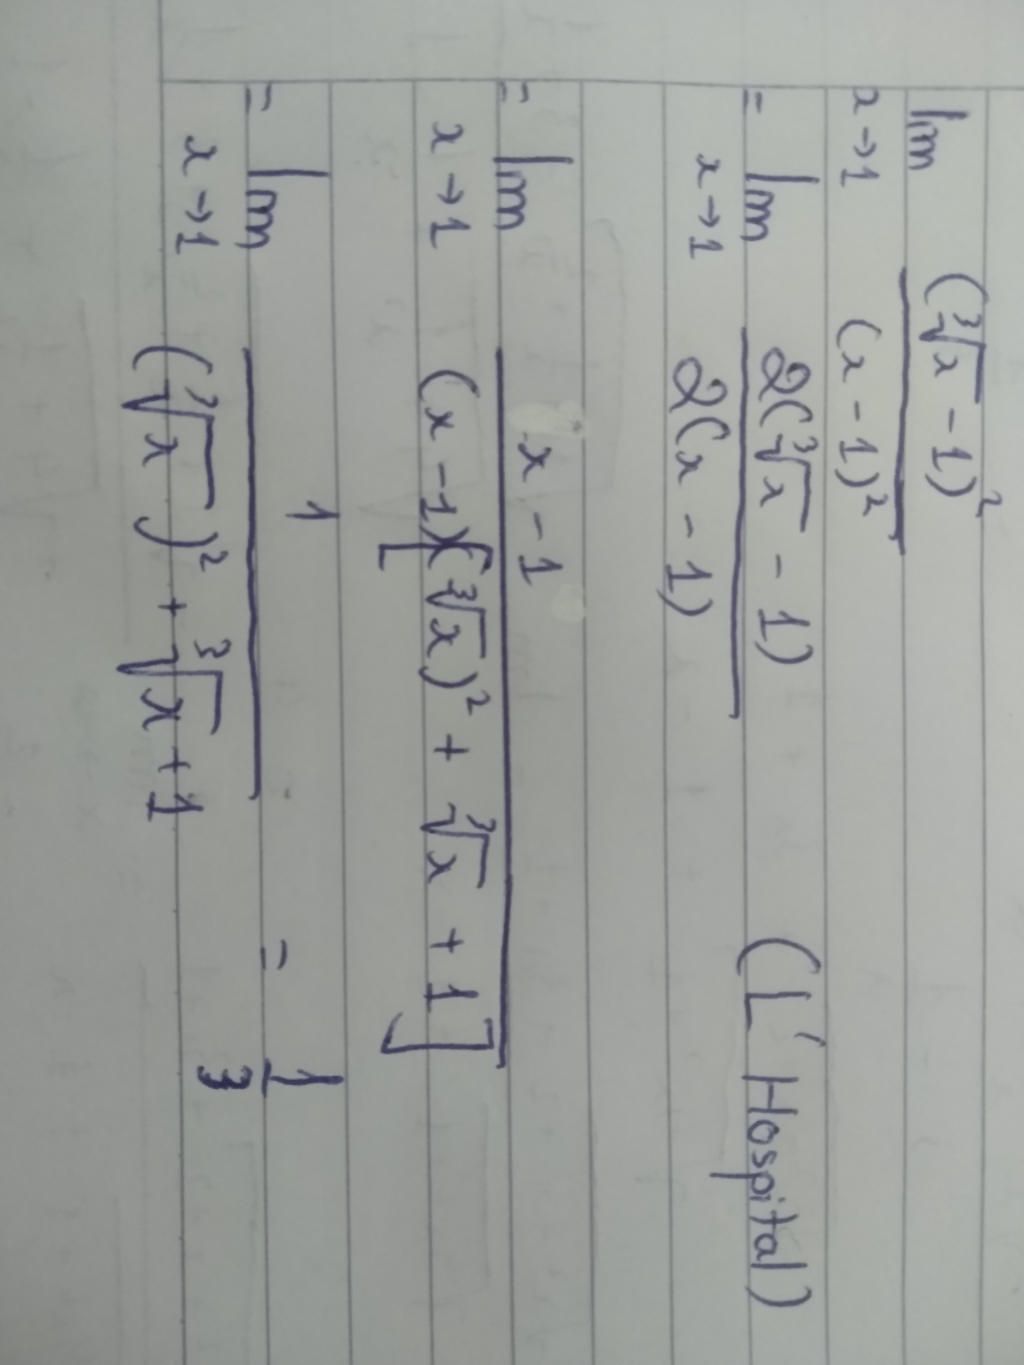 lim x→1 (∛x - 1)² / (x - 1)²
= lim x→1 2(∛x - 1) / 2(x - 1) (L'Hospital)
= lim x→1 x - 1 / (x - 1)[(∛x)² + ∛x + 1]
= lim x→1 1 / (∛x)² + ∛x + 1 = 1/3